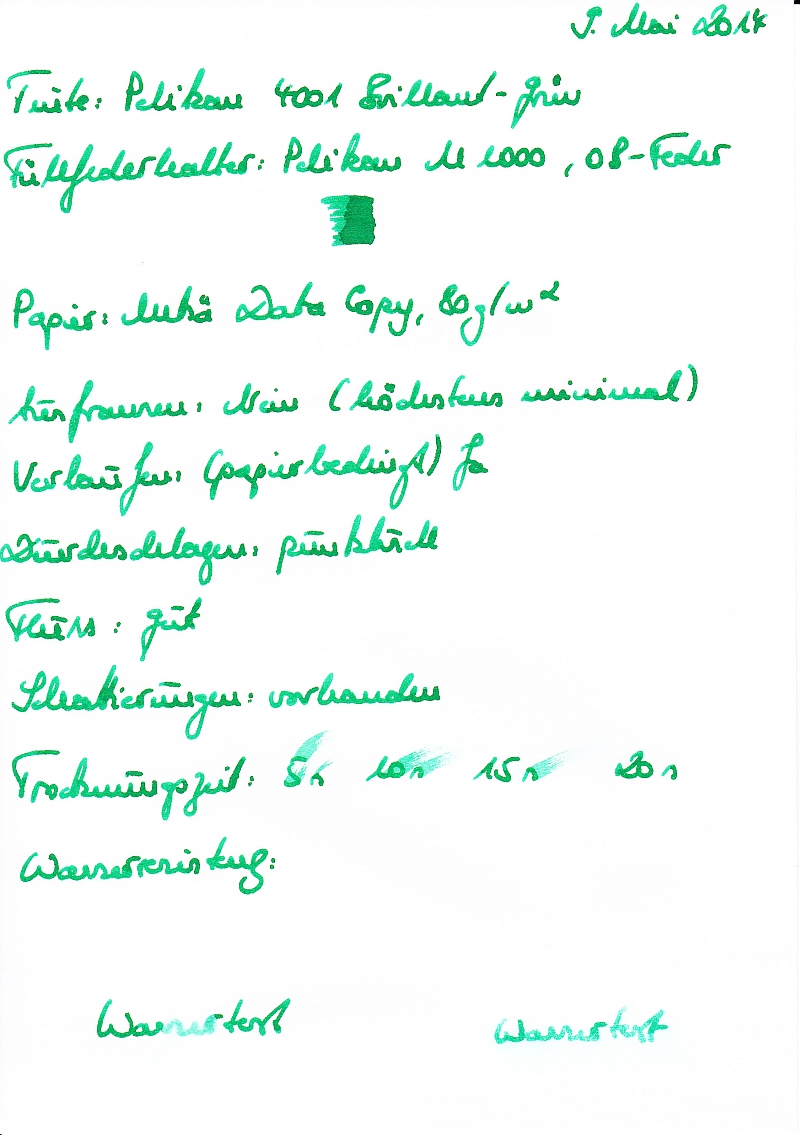 9. Mai 2014
Tinte: Pelikan 4001 Brillant-Grün
Füllfederhalter: Pelikan M 1000, OB-Feder
Papier: Metsä Data Copy, 80g/m²
Ausfransen: Nein (höchstens minimal)
Verlaufen: (papierbedingt) Ja
Durchschlagen: punktuell
Fluss: gut
Schattierungen: vorhanden
Trocknungszeit: 5s 10s 15s 20s
Wasserresistenz:
Wassertest Wassertest